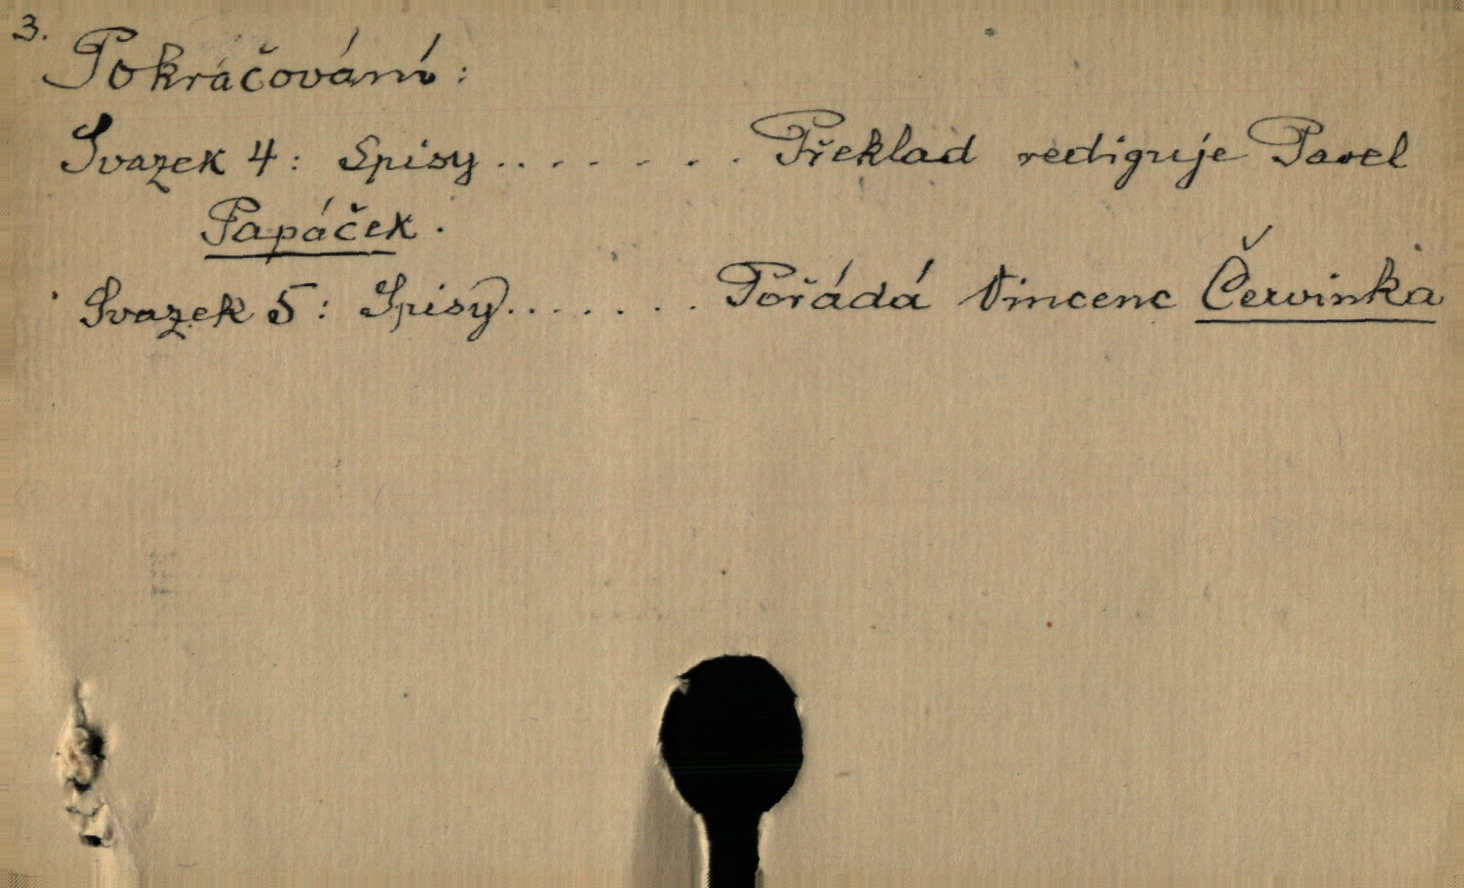 3.
Pokračování:
Svazek 4: Spisy........ Překlad rediguje Pavel
Papáček.
Svazek 5: Spisy....... Pořádá Vincenc Červinka